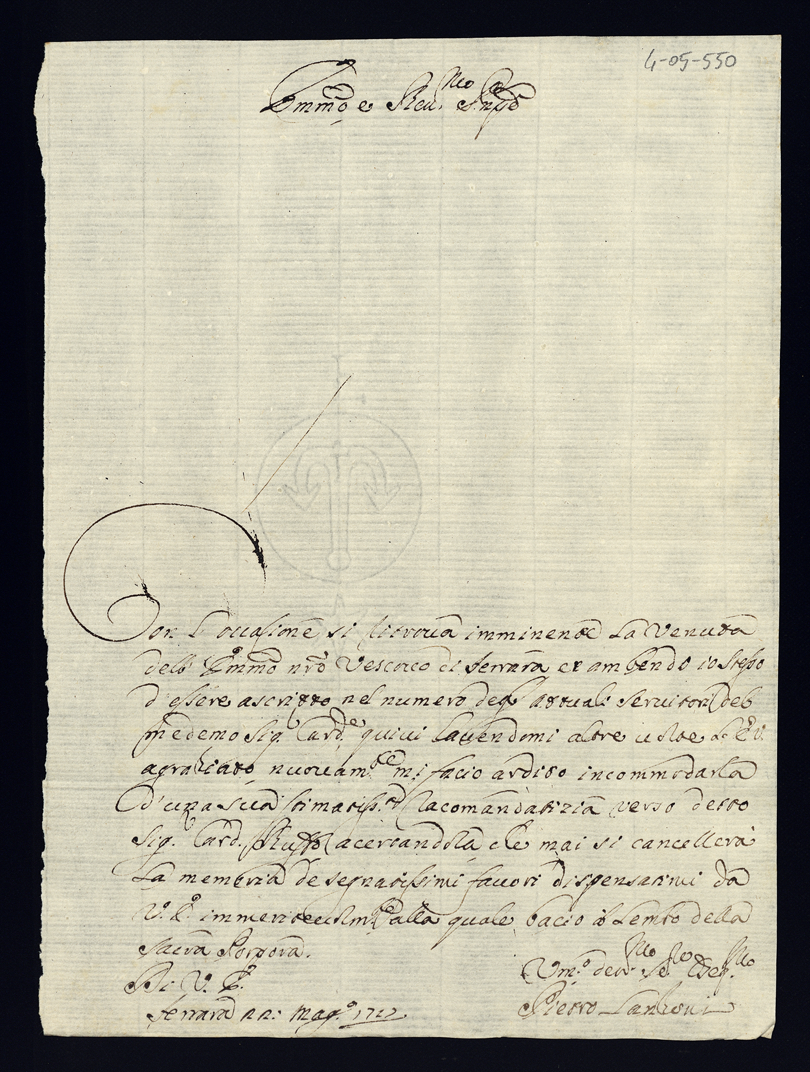 4-05-550
Emmo e Revmo Pnpe
Con l'occasione si ritrova imminente La Venuta
dell' Emmo nro Vescovo di Ferrara et ambendo io stesso
d'essere ascritto nel numero degl' attuali servitori del
medemo Sig. Card.e quivi havendomi altre volte L' E. V.
agraziato, nuovam.te mi facio ardito incommodarla
d'una sua stimatiss.a racomandatizia verso detto
Sig. Card. Ruffo acertandola che mai si cancellerà
La memoria de segnatissimi favori dispensatimi da
V. E. immeritevolm.te alla quale bacio il Lembo della
Sacra Porpora.
Di V. E.
Ferrara 22: Mag.o 1717
Um.o dev.mo se.re obleg.mo
Pietro Lanzoni